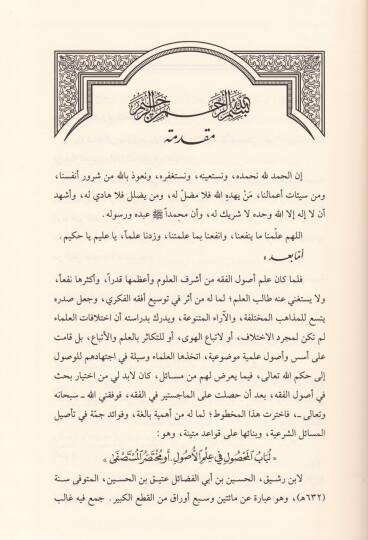 بسم الله الرحمن الرحيم
مقدمة
إن الحمد لله نحمده، ونستعينه، ونستغفره، ونعوذ بالله من شرور أنفسنا،
ومن سيئات أعمالنا، مَنْ يهدِهِ الله فلا مضلّ له، ومن يضلل فلا هادي له، وأشهد
أن لا إله إلا الله وحده لا شريك له، وأن محمداً ﷺ عبده ورسوله.
اللهم علّمنا ما ينفعنا، وانفعنا بما علمتنا، وزدنا علماً، يا عليم يا حكيم.
أما بعد،
فلما كان علم أصول الفقه من أشرف العلوم وأعظمها قدراً، وأكثرها نفعاً،
ولا يستغني عنه طالب العلم؛ لما له من أثر في توسيع أفقه الفكري، وجعل صدره
يتسع للمذاهب المختلفة، والآراء المتنوعة، ويدرك بدراسته أن اختلافات العلماء
لم تكن لمجرد الاختلاف، أو لاتباع الهوى، أو للتكاثر بالعلم والأتباع، بل قامت
على أسس وأصول علمية موضوعية، اتخذها العلماء وسيلة في اجتهادهم للوصول
إلى حكم الله تعالى، فيما يعرض لهم من مسائل، كان لابد لي من اختيار بحث
في أصول الفقه، بعد أن حصلت على الماجستير في الفقه، فوفقني الله ـ سبحانه
وتعالى ـ، فاخترت هذا المخطوط؛ لما له من أهمية بالغة، وفوائد جمّة في تأصيل
المسائل الشرعية، وبنائها على قواعد متينة، وهو:
«لُبَابُ المَحْصُولِ فِي عِلْمِ الأُصُولِ. أو مُخْتَصَرُ المُسْتَصْفَى»
لابن رشيق، الحسين بن أبي الفضائل عتيق بن الحسين، المتوفى سنة
(٦٣٢هـ)، وهو عبارة عن مائتين وسبع أوراق من القطع الكبير. جمع فيه غالب